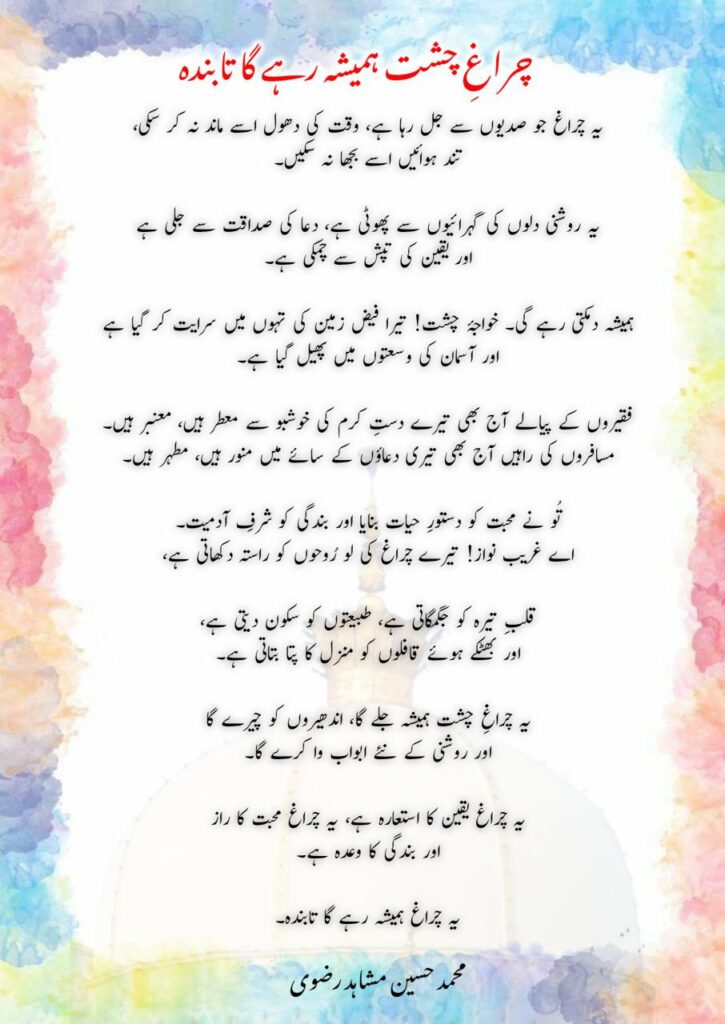 چراغِ چشت ہمیشہ رہے گا تابندہ
یہ چراغ جو صدیوں سے جل رہا ہے، وقت کی دھول اسے ماند نہ کر سکی،
تند ہوائیں اسے بجھا نہ سکیں۔
یہ روشنی دلوں کی گہرائیوں سے پھوٹی ہے، دعا کی صداقت سے جلی ہے
اور یقین کی تپش سے چمکی ہے۔
ہمیشہ دمکتی رہے گی۔ خواجۂ چشت! تیرا فیض زمین کی تہوں میں سرایت کر گیا ہے
اور آسمان کی وسعتوں میں پھیل گیا ہے۔
فقیروں کے پیالے آج بھی تیرے دستِ کرم کی خوشبو سے معطر ہیں، معنبر ہیں۔
مسافروں کی راہیں آج بھی تیری دعاؤں کے سائے میں منور ہیں، مطہر ہیں۔
تُو نے محبت کو دستورِ حیات بنایا اور بندگی کو شرفِ آدمیت۔
اے غریب نواز! تیرے چراغ کی لو رُوحوں کو راستہ دکھاتی ہے،
قلبِ تیرہ کو جگمگاتی ہے، طبیعتوں کو سکون دیتی ہے،
اور بھٹکے ہوئے قافلوں کو منزل کا پتا بتاتی ہے۔
یہ چراغِ چشت ہمیشہ جلے گا، اندھیروں کو چیرے گا
اور روشنی کے نئے ابواب وا کرے گا۔
یہ چراغ یقین کا استعارہ ہے، یہ چراغ محبت کا راز
اور بندگی کا وعدہ ہے۔
یہ چراغ ہمیشہ رہے گا تابندہ۔
محمد حسین مشاہد رضوی